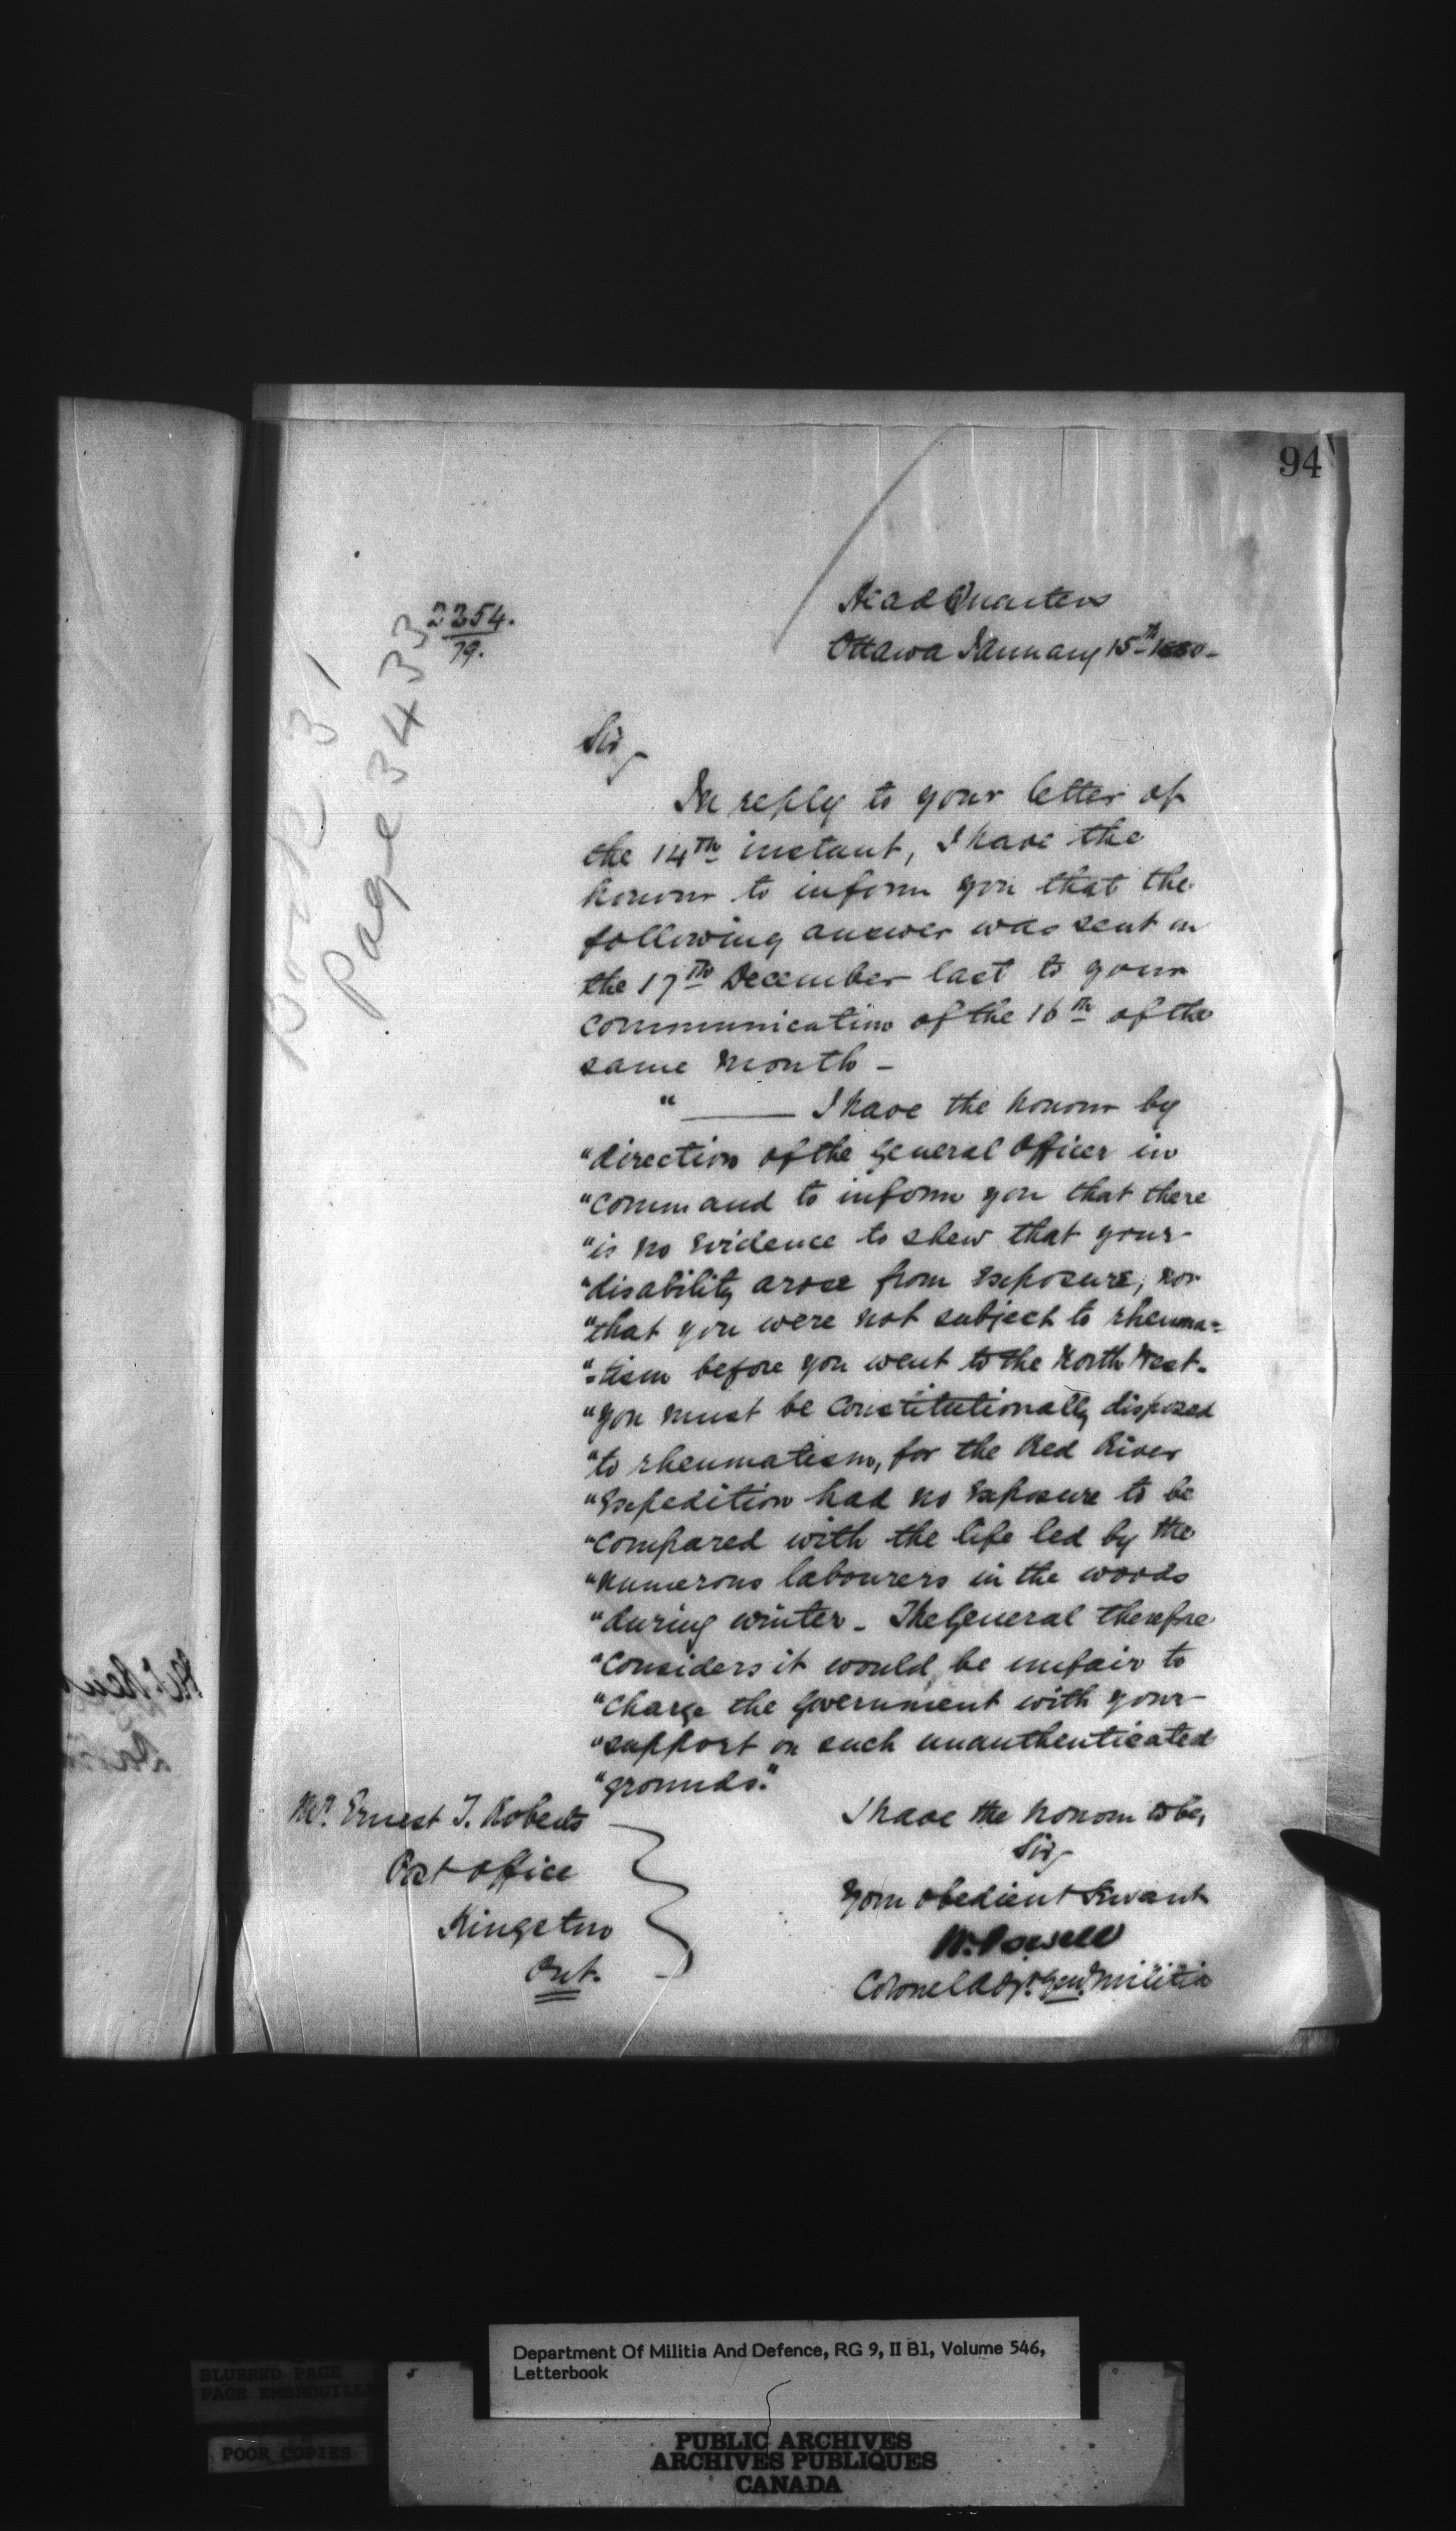 94
2354.
79.
Book 31
Page 3433
Head Quarters
Ottawa January 15th 1880-
Sir,
In reply to your letter of
the 14th instant, I have the
honour to inform you that the
following answer was sent on
the 17th December last to your
communication of the 16th of the
same month -
"——— I have the honour by
"direction of the General Officer in
"command to inform you that there
"is no evidence to shew that your
"disability arose from exposure, nor
"that you were not subject to rheuma=
"=tism before you went to the North West.
"You must be constitutionally disposed
"to rheumatism, for the Red River
"Expedition had no exposure to be
"compared with the life led by the
"numerous labourers in the woods
"during winter - The General therefore
"considers it would be unfair to
"charge the Government with your
"support on such unauthenticated
"grounds."
I have the honour to be,
Sir,
Your obedient Servant
W. Powell
Colonel Adjt. Genl. Militia
Mr. Ernest T. Roberts
Post Office
Kingston
Ont.
Department Of Militia And Defence, RG 9, II B1, Volume 546,
Letterbook
BLURRED PAGE
PAGE EMBROUILL
POOR COPIES
PUBLIC ARCHIVES
ARCHIVES PUBLIQUES
CANADA